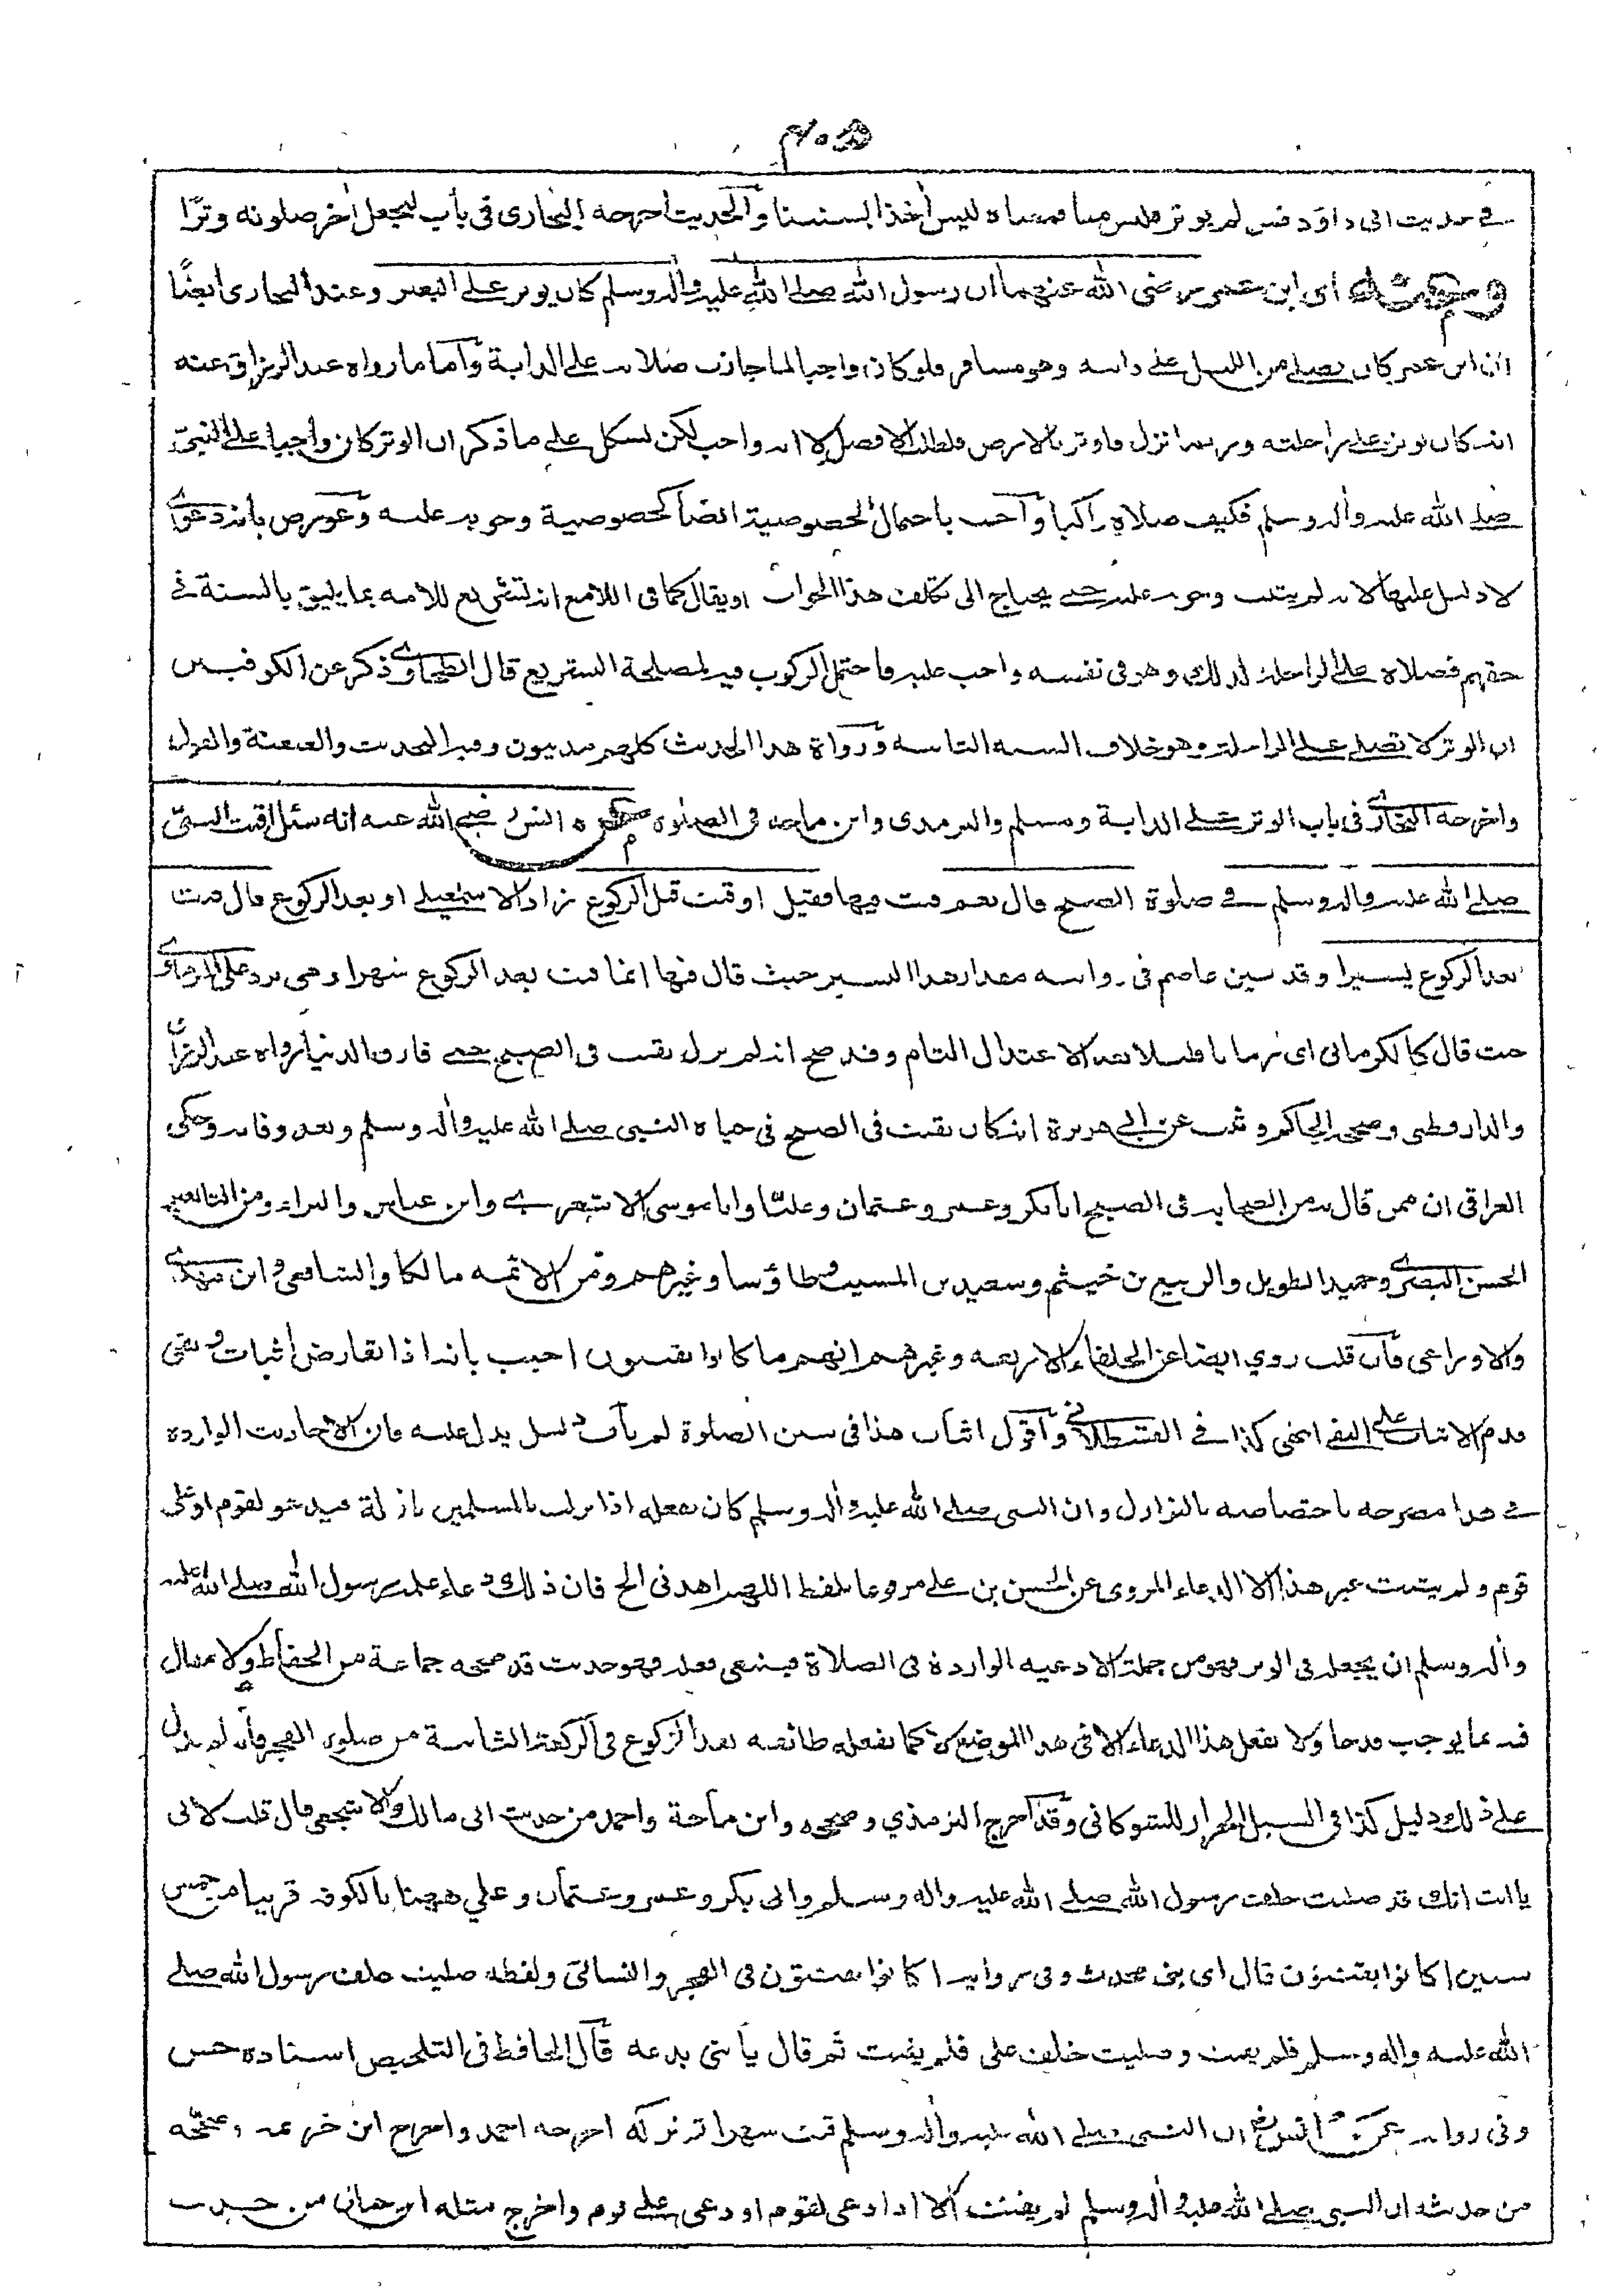 في حديث ابى داود فمن لم يوتر فليس منا فمعناه ليس أخذا بسنتنا والحديث اخرجه البخارى في باب ليجعل أخر صلوته وترًا
وعنه اى ابن عمر رضى الله عنهما ان رسول الله صلے الله عليه وأله وسلم كان يوتر علے البعير وعند البخارى ايضًا
ان ابن عمر كان يصلے من الليل علے دابته وهو مسافر فلو كان واجبا لما جازت صلاته علے الدابة واما ما رواه عبد الرزاق عنه
انه كان يوتر علے راحلته وربما نزل فاوتر بالارض فلطلب الافضل لا انه واجب لكن يشكل علے ما ذكر ان الوتر كان واجبا علے النبيّ
صلے الله عليه وأله وسلم فكيف صلاه راكبا واجيب باحتمال الخصوصية ايضا كخصوصية وجوبه عليه وعورض بانه دعوے
لا دليل عليها لانه لم يثبت وجوبه عليه حتے يحتاج الى تكلف هذا الجواب او يقال كما فى اللامع انه لتشريع للامة بما يليق بالسنة في
حقهم فصلاه علے الراحلة لذلك وهو فى نفسه واجب عليه فاحتمل الركوب فيه لمصلحة التشريع قال الطحاوے ذكر عن الكوفيين
ان الوتر لا تصلے علے الراحلة وهو خلاف السنة الثابتة ورواة هذا الحديث كلهم مدنيون وفيه التحديث والعنعنة والقول
واخرجه البخارے فى باب الوتر علے الدابة ومسلم والترمذى وابن ماجه فى الصلوة انس رضے الله عنه انه سئل اقنت النبيّ
صلے الله عليه وأله وسلم في صلوة الصبح قال نعم قنت فيها فقيل اوقنت قبل الركوع زاد الاسمعيلے او بعد الركوع قال قنت
بعد الركوع يسيرا وقد بين عاصم فى روايته مقدار هذا اليسير حيث قال فيها انما قنت بعد الركوع شهرا وهى ترد على البرماوے
حيث قال كالكرمانى اى زمانا قليلا بعد الاعتدال التام وقد صح انه لم يزل يقنت فى الصبح حتے فارق الدنيا رواه عبد الرزاق
والدار قطنى وصححه الحاكم وثبت عن ابے هريرة انه كان يقنت فى الصبح فى حياة النبى صلے الله عليه وأله وسلم وبعد وفاته وحكى
العراقى ان ممن قال به من الصحابة فى الصبح ابا بكر وعمر وعثمان وعليًا وابا موسى الاشعرے وابن عباس والبراء ومن التابعين
الحسن البصرے وحميد الطويل والربيع بن خيثم وسعيد بن المسيب وطاؤسا وغيرهم ومن الائمة مالكا والشافعى وابن مهدے
والاوزاعى فان قلت روي ايضا عن الخلفاء الاربعة وغيرهم انهم ما كانوا يقنتون اجيب بانه اذا تعارض اثبات ونفى
قدم الاثبات علے النفے انتهى كذا في القسطلانے واقول اثبات هذا فى سنن الصلوة لم يأت دليل يدل عليه فان الاحاديث الواردة
في هذا مصرحه باختصاصه بالنوازل وان النبى صلے الله عليه وأله وسلم كان يفعله اذا نزلت بالمسلمين نازلة فيدعو لقوم او على
قوم ولم يثبت غير هذا الا الدعاء المروى عن الحسن بن علے مرفوعا بلفظ اللهم اهدنى الخ فان ذلك دعاء علمه رسول الله صلے الله عليه
وأله وسلم ان يجعله فى الوتر فهو من جملة الادعيه الواردة فى الصلاة فينبغى فعله فهو حديث قد صححه جماعة من الحفاظ ولا مقال
فيه بما يوجب قدحا ولا نفعل هذا الدعاء الا فى هذا الموضع لا كما تفعله طائفه بعد الركوع فى الركعة الثانية من صلوة الفجر فانه لم يدل
علے ذلك دليل كذا فى السيل الجرار للشوكانى وقد اخرج الترمذي وصححه وابن ماجة واحمد من حديث ابى مالك الاشجعى قال قلت لابى
يا ابت انك قد صليت خلف رسول الله صلے الله عليه واله وسلم وابى بكر وعمر وعثمان وعلي ههنا بالكوفه قريبا من خمس
سنين اكانوا يقنتون قال اى بنى محدث وفى رواية اكانوا يقنتون فى الفجر والنسائى ولفظه صليت خلف رسول الله صلے
الله عليه واله وسلم فلم يقنت وصليت خلف على فلم يقنت ثم قال يا بنى بدعه قال الحافظ فى التلخيص اسناده حسن
وفى رواية عن انس رض ان النبى صلے الله عليه وأله وسلم قنت شهرا ثم تركه اخرجه احمد واخرج ابن خزيمة وصححه
من حديثه ان النبى صلے الله عليه وأله وسلم لم يقنت الا اذا دعى لقوم او دعى علے قوم واخرج مثله ابن حبان من حديث